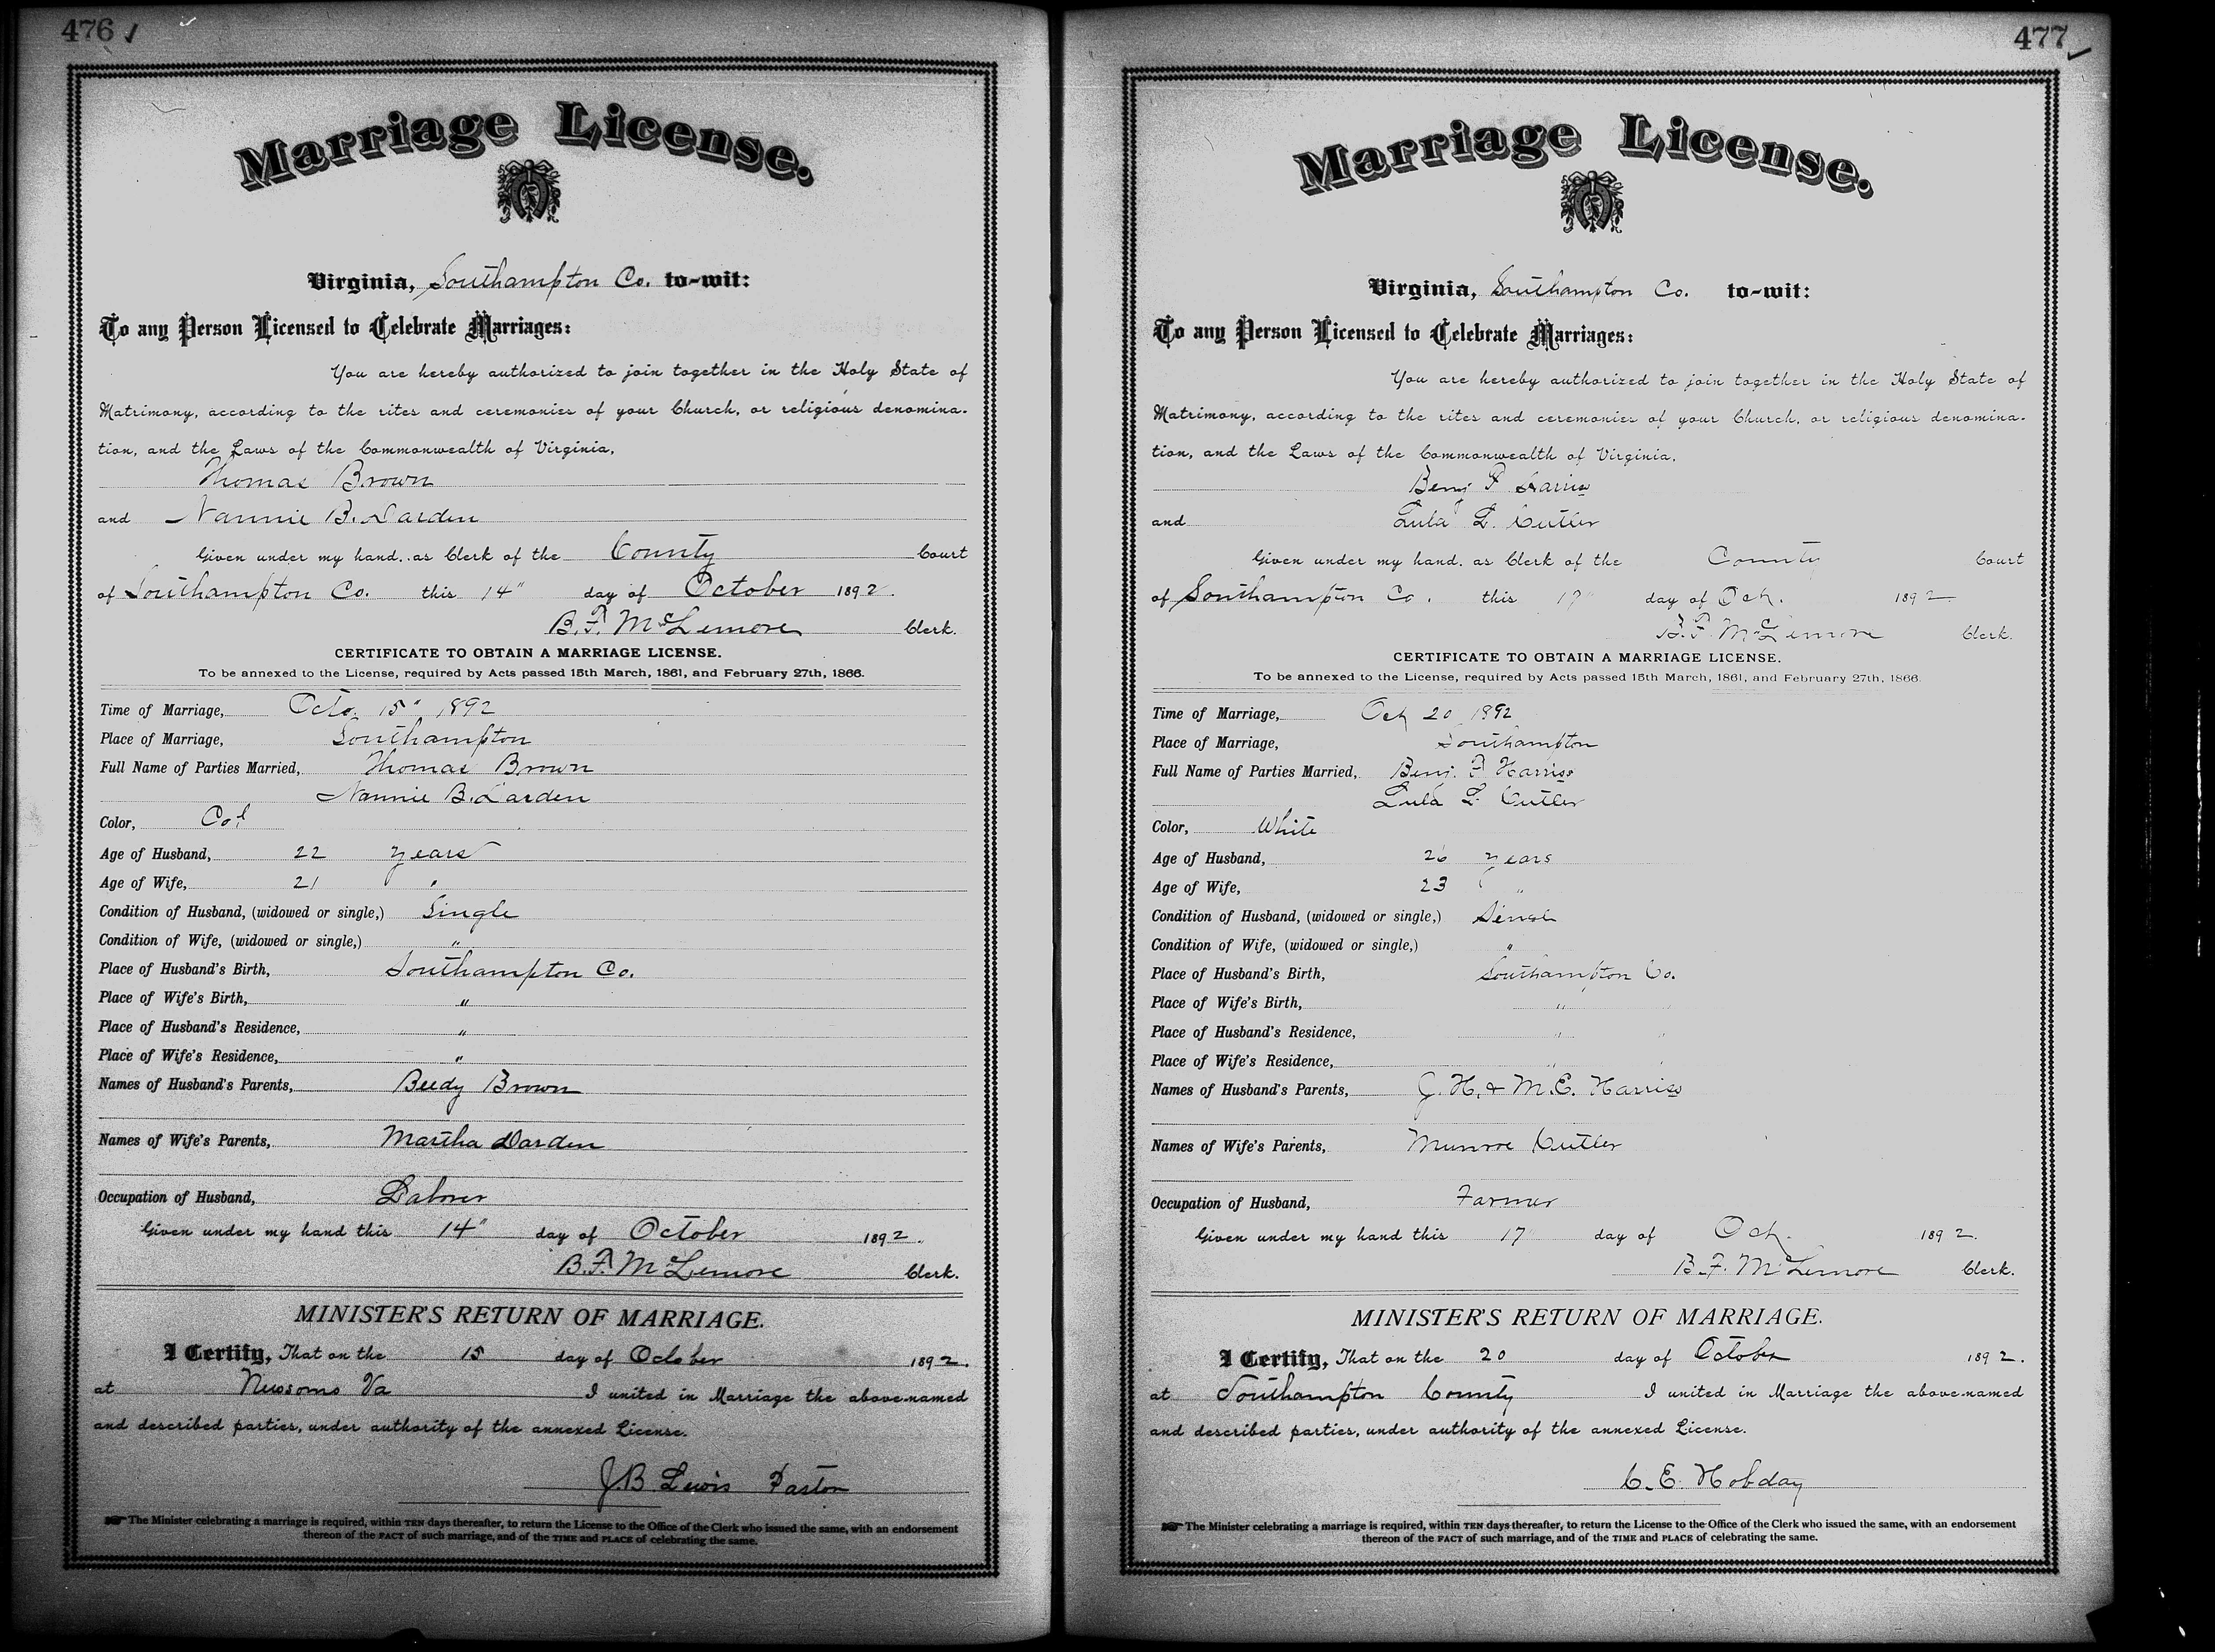 476
Marriage License.
Virginia, Southampton Co. to-wit:
To any Person Licensed to Celebrate Marriages:
You are hereby authorized to join together in the Holy State of
Matrimony, according to the rites and ceremonies of your Church, or religious denomina-
tion, and the Laws of the Commonwealth of Virginia,
Thomas Brown
and Nannie B. Darden
Given under my hand, as Clerk of the County Court
of Southampton Co. this 14" day of October 1892.
B. F. McLemore Clerk.
CERTIFICATE TO OBTAIN A MARRIAGE LICENSE.
To be annexed to the License, required by Acts passed 15th March, 1861, and February 27th, 1866.
Time of Marriage, Octo. 15" 1892
Place of Marriage, Southampton
Full Name of Parties Married, Thomas Brown
Nannie B. Darden
Color, Col
Age of Husband, 22 years
Age of Wife, 21 "
Condition of Husband, (widowed or single,) Single
Condition of Wife, (widowed or single,) "
Place of Husband's Birth, Southampton Co.
Place of Wife's Birth, "
Place of Husband's Residence, "
Place of Wife's Residence, "
Names of Husband's Parents, Beedy Brown
Names of Wife's Parents, Martha Darden
Occupation of Husband, Laborer
Given under my hand this 14" day of October 1892.
B. F. McLemore Clerk.
MINISTER'S RETURN OF MARRIAGE.
I Certify, That on the 15 day of October 1892.
at Newsoms Va I united in Marriage the above-named
and described parties, under authority of the annexed License.
J. B. Lewis Pastor
The Minister celebrating a marriage is required, within TEN days thereafter, to return the License to the Office of the Clerk who issued the same, with an endorsement
thereon of the FACT of such marriage, and of the TIME and PLACE of celebrating the same.
477
Marriage License.
Virginia, Southampton Co. to-wit:
To any Person Licensed to Celebrate Marriages:
You are hereby authorized to join together in the Holy State of
Matrimony, according to the rites and ceremonies of your Church, or religious denomina-
tion, and the Laws of the Commonwealth of Virginia,
Benj F Harriss
and Lula L. Cutler
Given under my hand, as Clerk of the County Court
of Southampton Co. this 17" day of Oct. 1892
B. F. McLemore Clerk.
CERTIFICATE TO OBTAIN A MARRIAGE LICENSE.
To be annexed to the License, required by Acts passed 15th March, 1861, and February 27th, 1866.
Time of Marriage, Oct 20 1892
Place of Marriage, Southampton
Full Name of Parties Married, Benj. F Harriss
Lula L. Cutler
Color, White
Age of Husband, 26 years
Age of Wife, 23 "
Condition of Husband, (widowed or single,) Single
Condition of Wife, (widowed or single,) "
Place of Husband's Birth, Southampton Co.
Place of Wife's Birth, " "
Place of Husband's Residence, " "
Place of Wife's Residence, " "
Names of Husband's Parents, J. H. & M. E. Harriss
Names of Wife's Parents, Munroe Cutler
Occupation of Husband, Farmer
Given under my hand this 17 day of Oct. 1892.
B. F. McLemore Clerk.
MINISTER'S RETURN OF MARRIAGE.
I Certify, That on the 20 day of October 1892.
at Southampton County I united in Marriage the above-named
and described parties, under authority of the annexed License.
C. E. Hobday
The Minister celebrating a marriage is required, within TEN days thereafter, to return the License to the Office of the Clerk who issued the same, with an endorsement
thereon of the FACT of such marriage, and of the TIME and PLACE of celebrating the same.